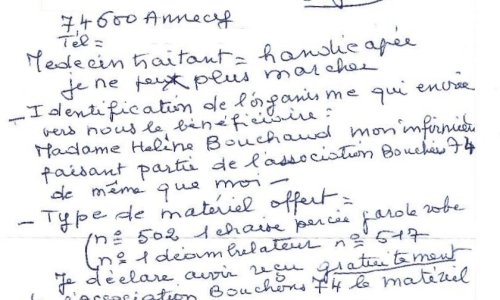 74600 Annecy
Tél =
Medecin traitant = handicapée
je ne peux plus marcher
- Identification de l'organisme qui envoie
vers nous le bénéficiaire =
Madame Helène Bouchaud mon infirmière
faisant partie de l'association Bouchons 74
de même que moi -
- Type de matériel offert =
(n° 502 1 chaise percée garde robe
(n° 1 déambulateur n° 517
Je déclare avoir reçu gratuitement
l'association Bouchons 74 le matériel